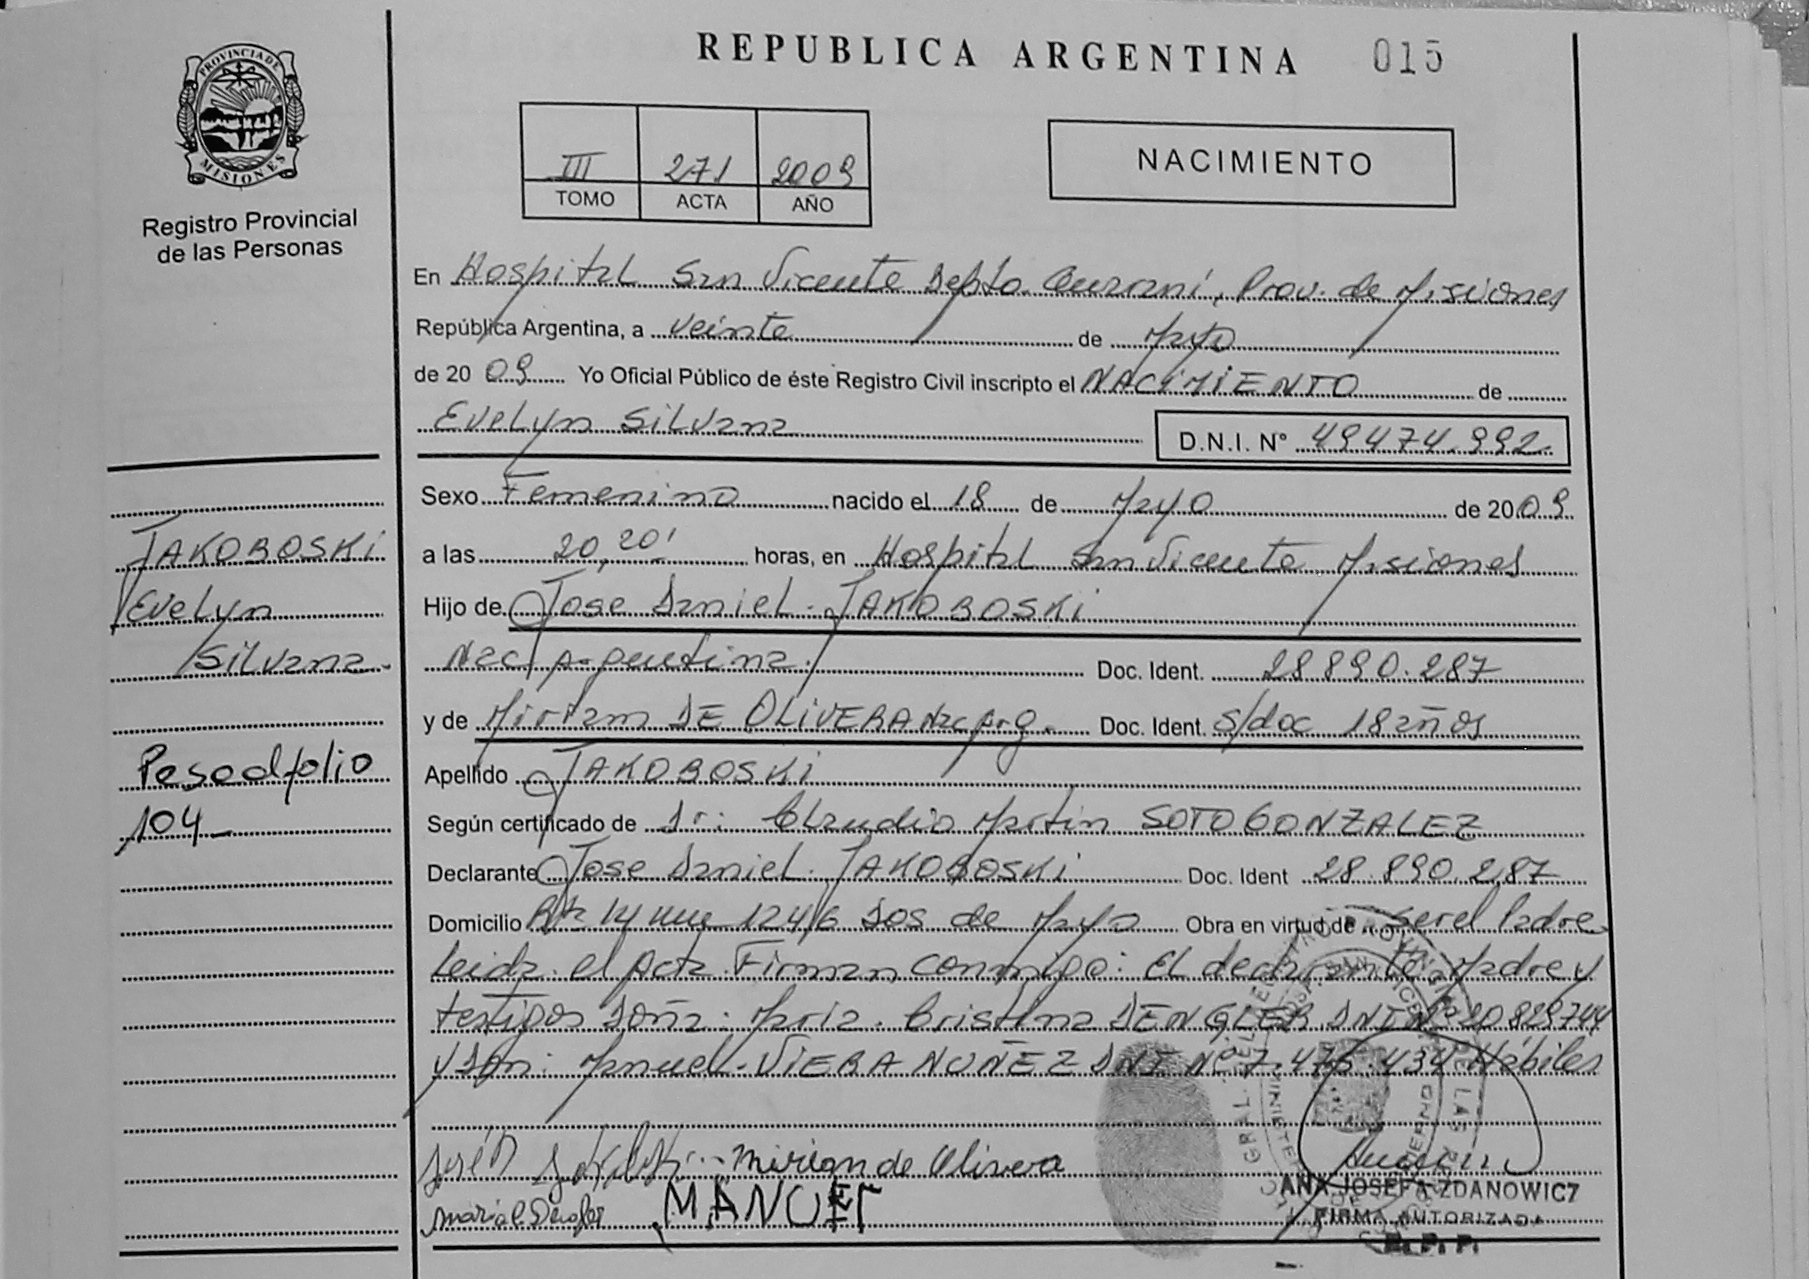 REPUBLICA ARGENTINA 015
PROVINCIA DE
MISIONES
Registro Provincial
de las Personas
III 271 2009
TOMO ACTA AÑO
NACIMIENTO
En Hospital San Vicente Depto. Guaraní, Prov. de Misiones
República Argentina, a veinte de Mayo
de 2009 Yo Oficial Público de éste Registro Civil inscripto el NACIMIENTO de
Evelyn Silvana D.N.I. N° 49474.992.
Sexo Femenino nacido el 18 de Mayo de 2009
a las 20,20' horas, en Hospital San Vicente Misiones
Hijo de Jose Daniel JAKOBOSKi
Nac/ Argentina. Doc. Ident. 28890.287
y de Miriam DE OLIVERA Nac Arg. Doc. Ident. s/doc 18 años
Apellido JAKOBOSKi
Según certificado de Dr: Claudio Martin SOTO GONZALEZ
Declarante Jose Daniel JAKOBOSKi Doc. Ident 28.890.287
Domicilio 14 1246 Dos de Mayo Obra en virtud de ser el Padre
Leida el Acta Firman conmigo: El declarante, Madre y
testigos Doña: Maria Cristina DENGLER DNI Nº 20829744
y Don: Manuel VIERA NUÑEZ DNI Nº 7.475.434 Hábiles
JAKOBOSKi
Evelyn
Silvana
Pase al folio
104
Miriam de Olivera
MANUEL
ANA JOSEFA ZDANOWICZ
FIRMA AUTORIZADA
R. P. P.